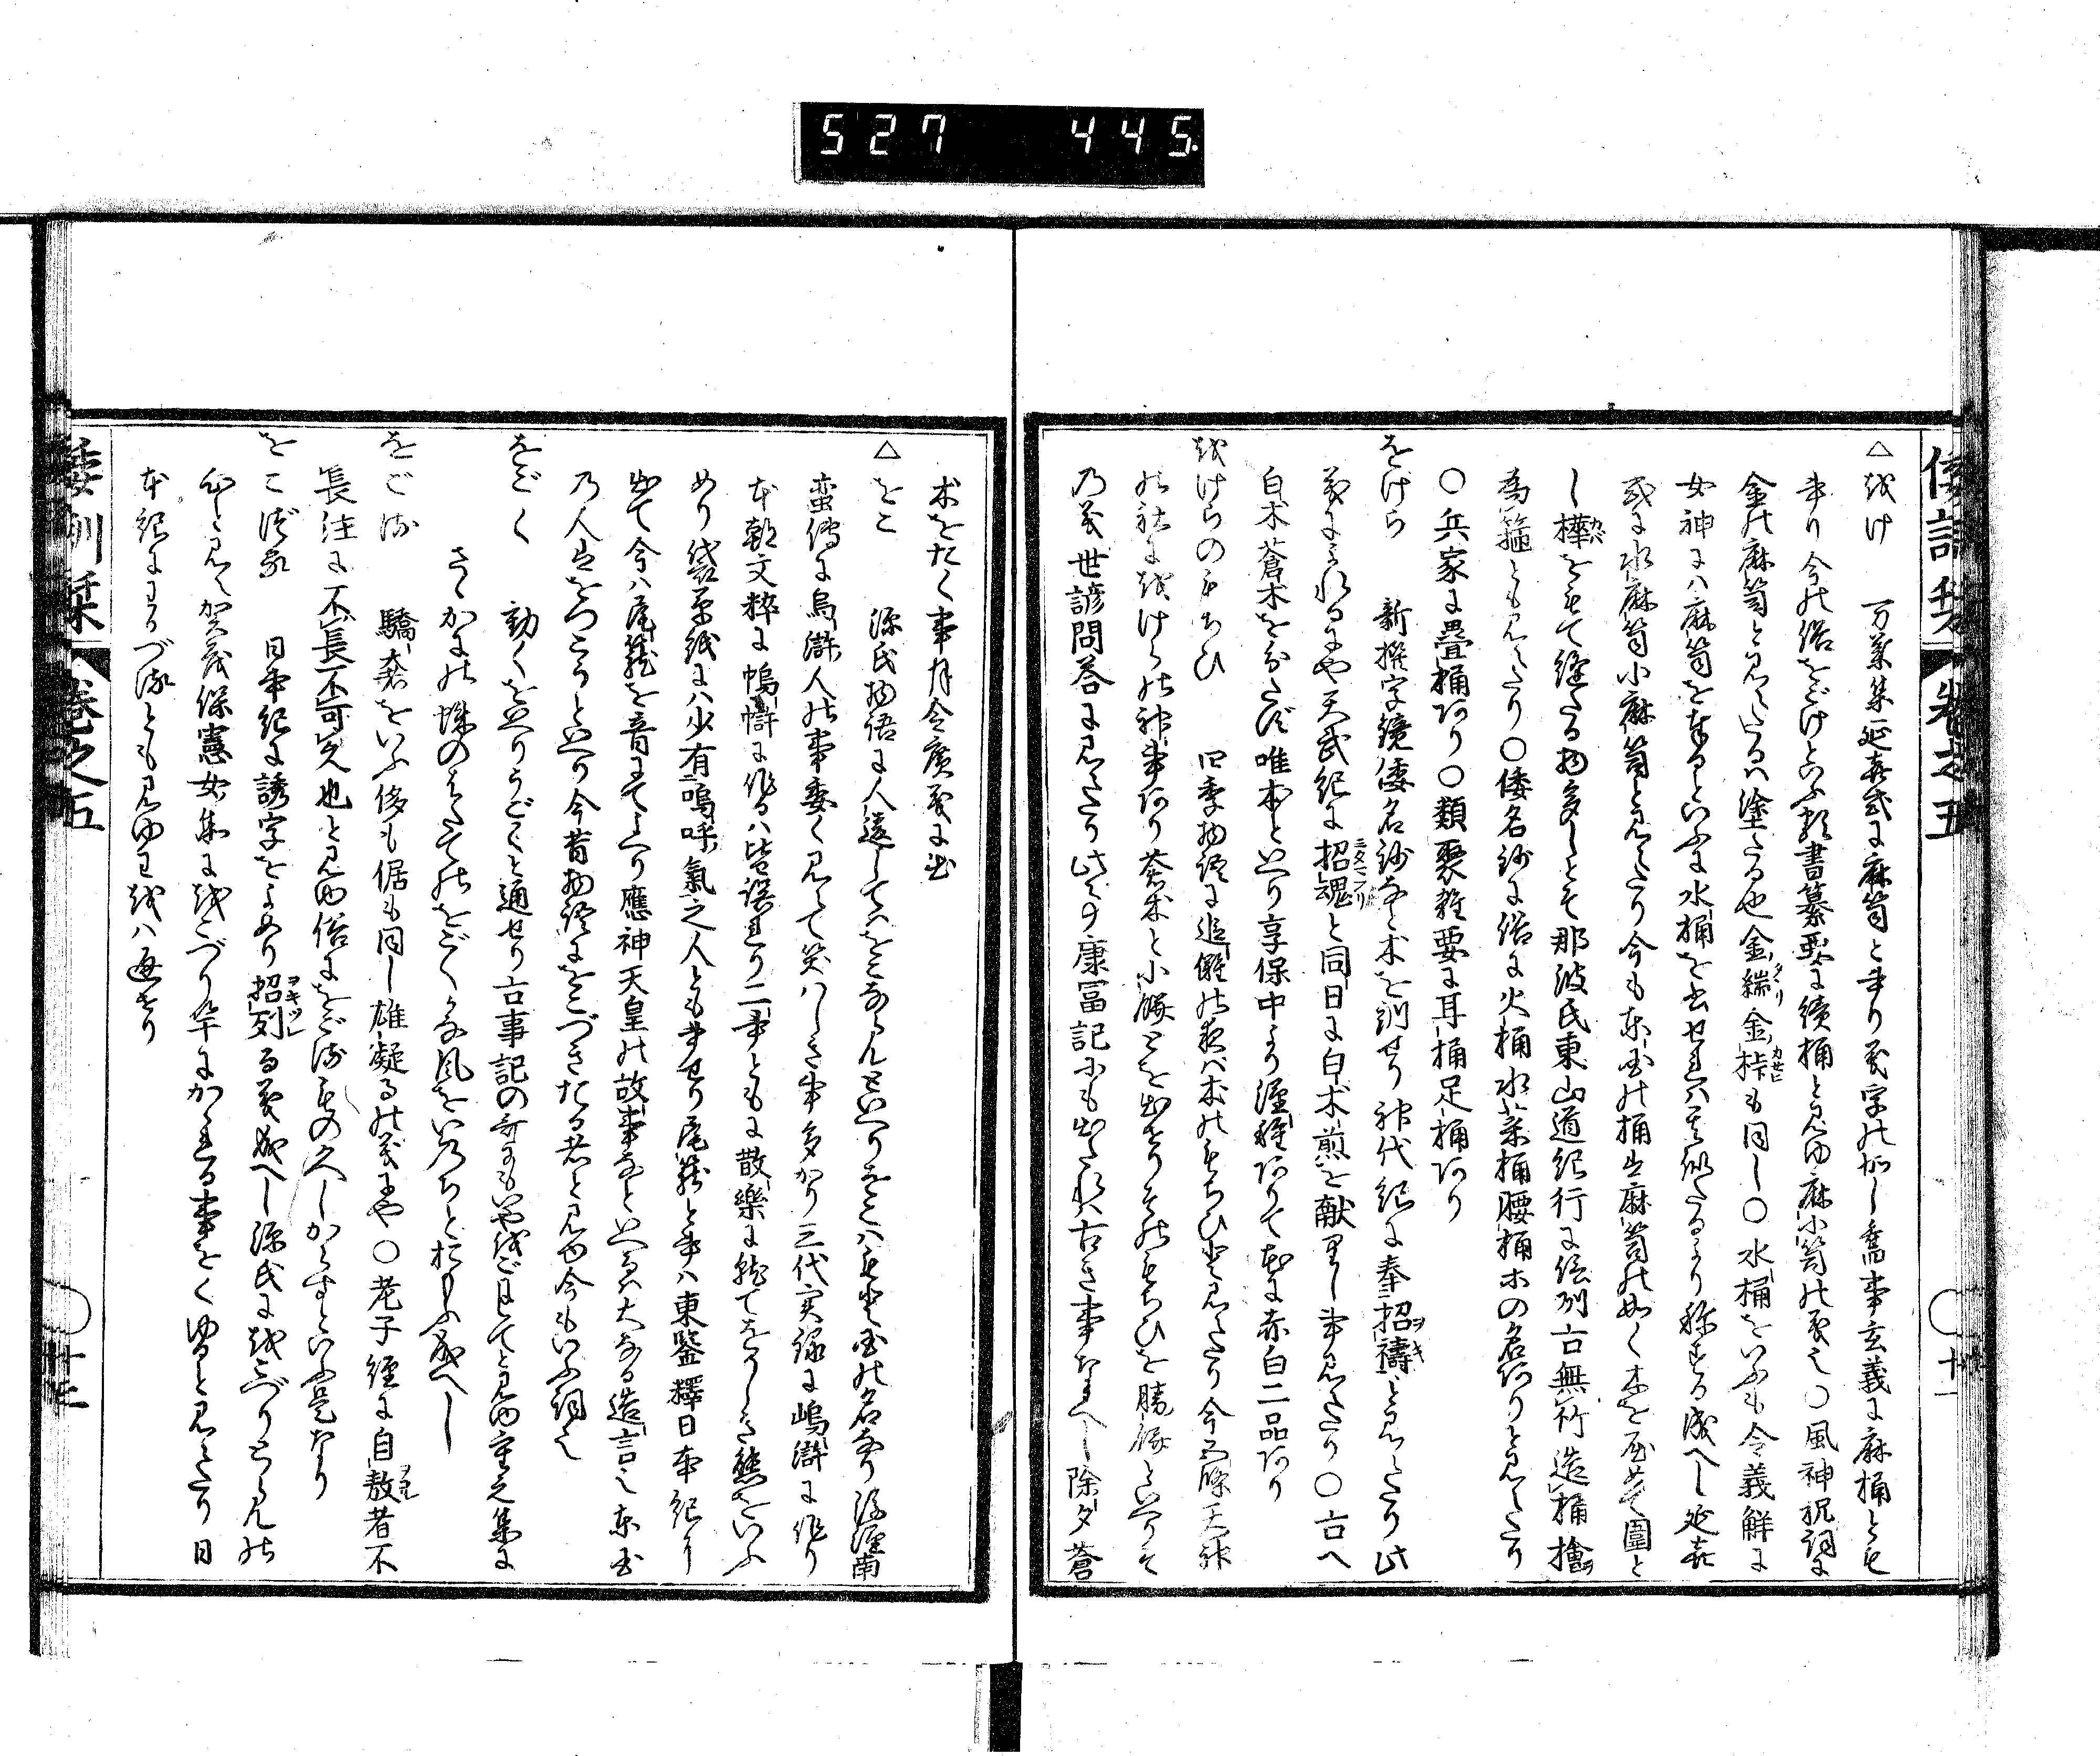 527 445.
倭訓栞 巻之五 ○十一
△越け 万葉集延喜式に麻笥と書り義字の如し喬事玄義に麻桶とも
書り今の俗をごけといふ类書纂要に績桶と見ゆ麻小笥の義也○風神祝詞に
金の麻笥と見えたるハ塗たる也金ノ縿金ノ桛も同し○水桶をいふも令義解に
女神にハ麻笥を奉るといふに水桶を出せれハ其似たるより稱する成へし延喜
式に水麻笥小麻笥と見えたり今も東国の桶は麻笥の如く木を屈めて圍と
し樺をもて縫たる物多しとそ那波氏東山道紀行に信列古無竹造桶檜
為箍とも見えたり○倭名鈔に俗に火桶水菜桶腰桶ホの名ありと見えたり
○兵家に疊桶あり○類聚雑要に耳桶足桶あり
をけら 新撰字鏡倭名鈔なと朮を訓せり神代紀に奉招禱と見えたり此
義によれるにや天武紀に招魂と同日に白朮煎を献りし事見えたり○古へ
白朮蒼朮をわかたず唯朮といへり享保中より渡種ありて花に赤白二品あり
越けらのもちひ 四季物語に追儺の夜ハ朮のもちひ也と見えたり今五條天神
の社に越けらの神事あり蒼朮と小餅とを出せりその もちひを勝餅といへりそ
乃義世諺問答に見えたり此こと康冨記にも出たれハ古き事なるへし除夕蒼
朮をたく事月令廣義に出
△をこ 源氏物語に人違してハをこならんといへりをこハもと国の名なり後漢南
蛮傳に烏滸人の事委く見えて笑ハしき事多かり三代実録に嶋滸に作り
本朝文粋に㠶𢄙に作るハ皆誤れり二事ともに散樂に就てをかしき態をいふ
めり袋草紙にハ少有嗚呼氣之人とも書せり尾籠と書ハ東鑑釋日本紀より
出て今ハ尾籠を音にていへり應神天皇の故事なといへるハ大なる造言也東国
乃人はをつこうといへり今昔物語にをこづきたる者と見ゆ今もいふ詞也
をごく 動くをいへりうごくと通せり古事記の哥にもいや越こにしてと見ゆ重之集に
さゝかにの蛛のすたての をごくかな風をいのちとおもふ成へし
をごる 驕奢をいふ侈も倨も同し雄凝るの義にや○老子經に自敖者不
長注に不長不可久也と見ゆ俗にをごるもの久しからすといふ是なり
をこづる 日本紀に誘字をよめり招列る義成へし源氏に越こづりとらんの
心と見え賀茂保憲女集に越こづり竿にかゝれる事をくゆると見えたり日
本紀にわかづるとも見ゆわ越ハ通せり
倭訓栞 巻之五 ○廿三